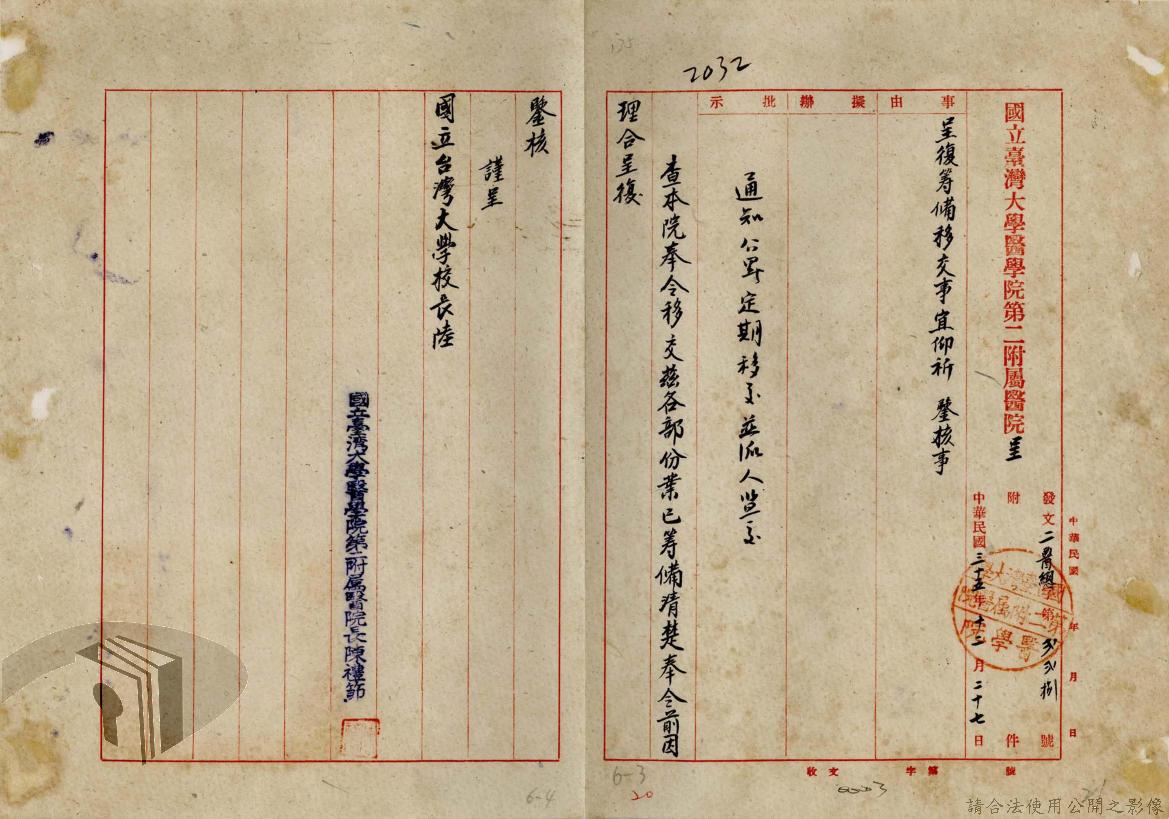 2032
國立臺灣大學醫學院第二附屬醫院呈
中華民國 年 月 日
發文二醫總字第 捌號
附 件
中華民國三十五年十二月二十七日
事由
呈復籌備移交事宜仰祈 鑒核事
擬辦
批示
通知公署定期移交並派人監交
查本院奉令移交茲各部份業已籌備清楚奉令前因
理合呈復
鑒核
謹呈
國立台灣大學校長陸
國立臺灣大學醫學院第二附屬醫院長陳禮節
收文 字第 號
6-3
20
6-4
請合法使用公開之影像